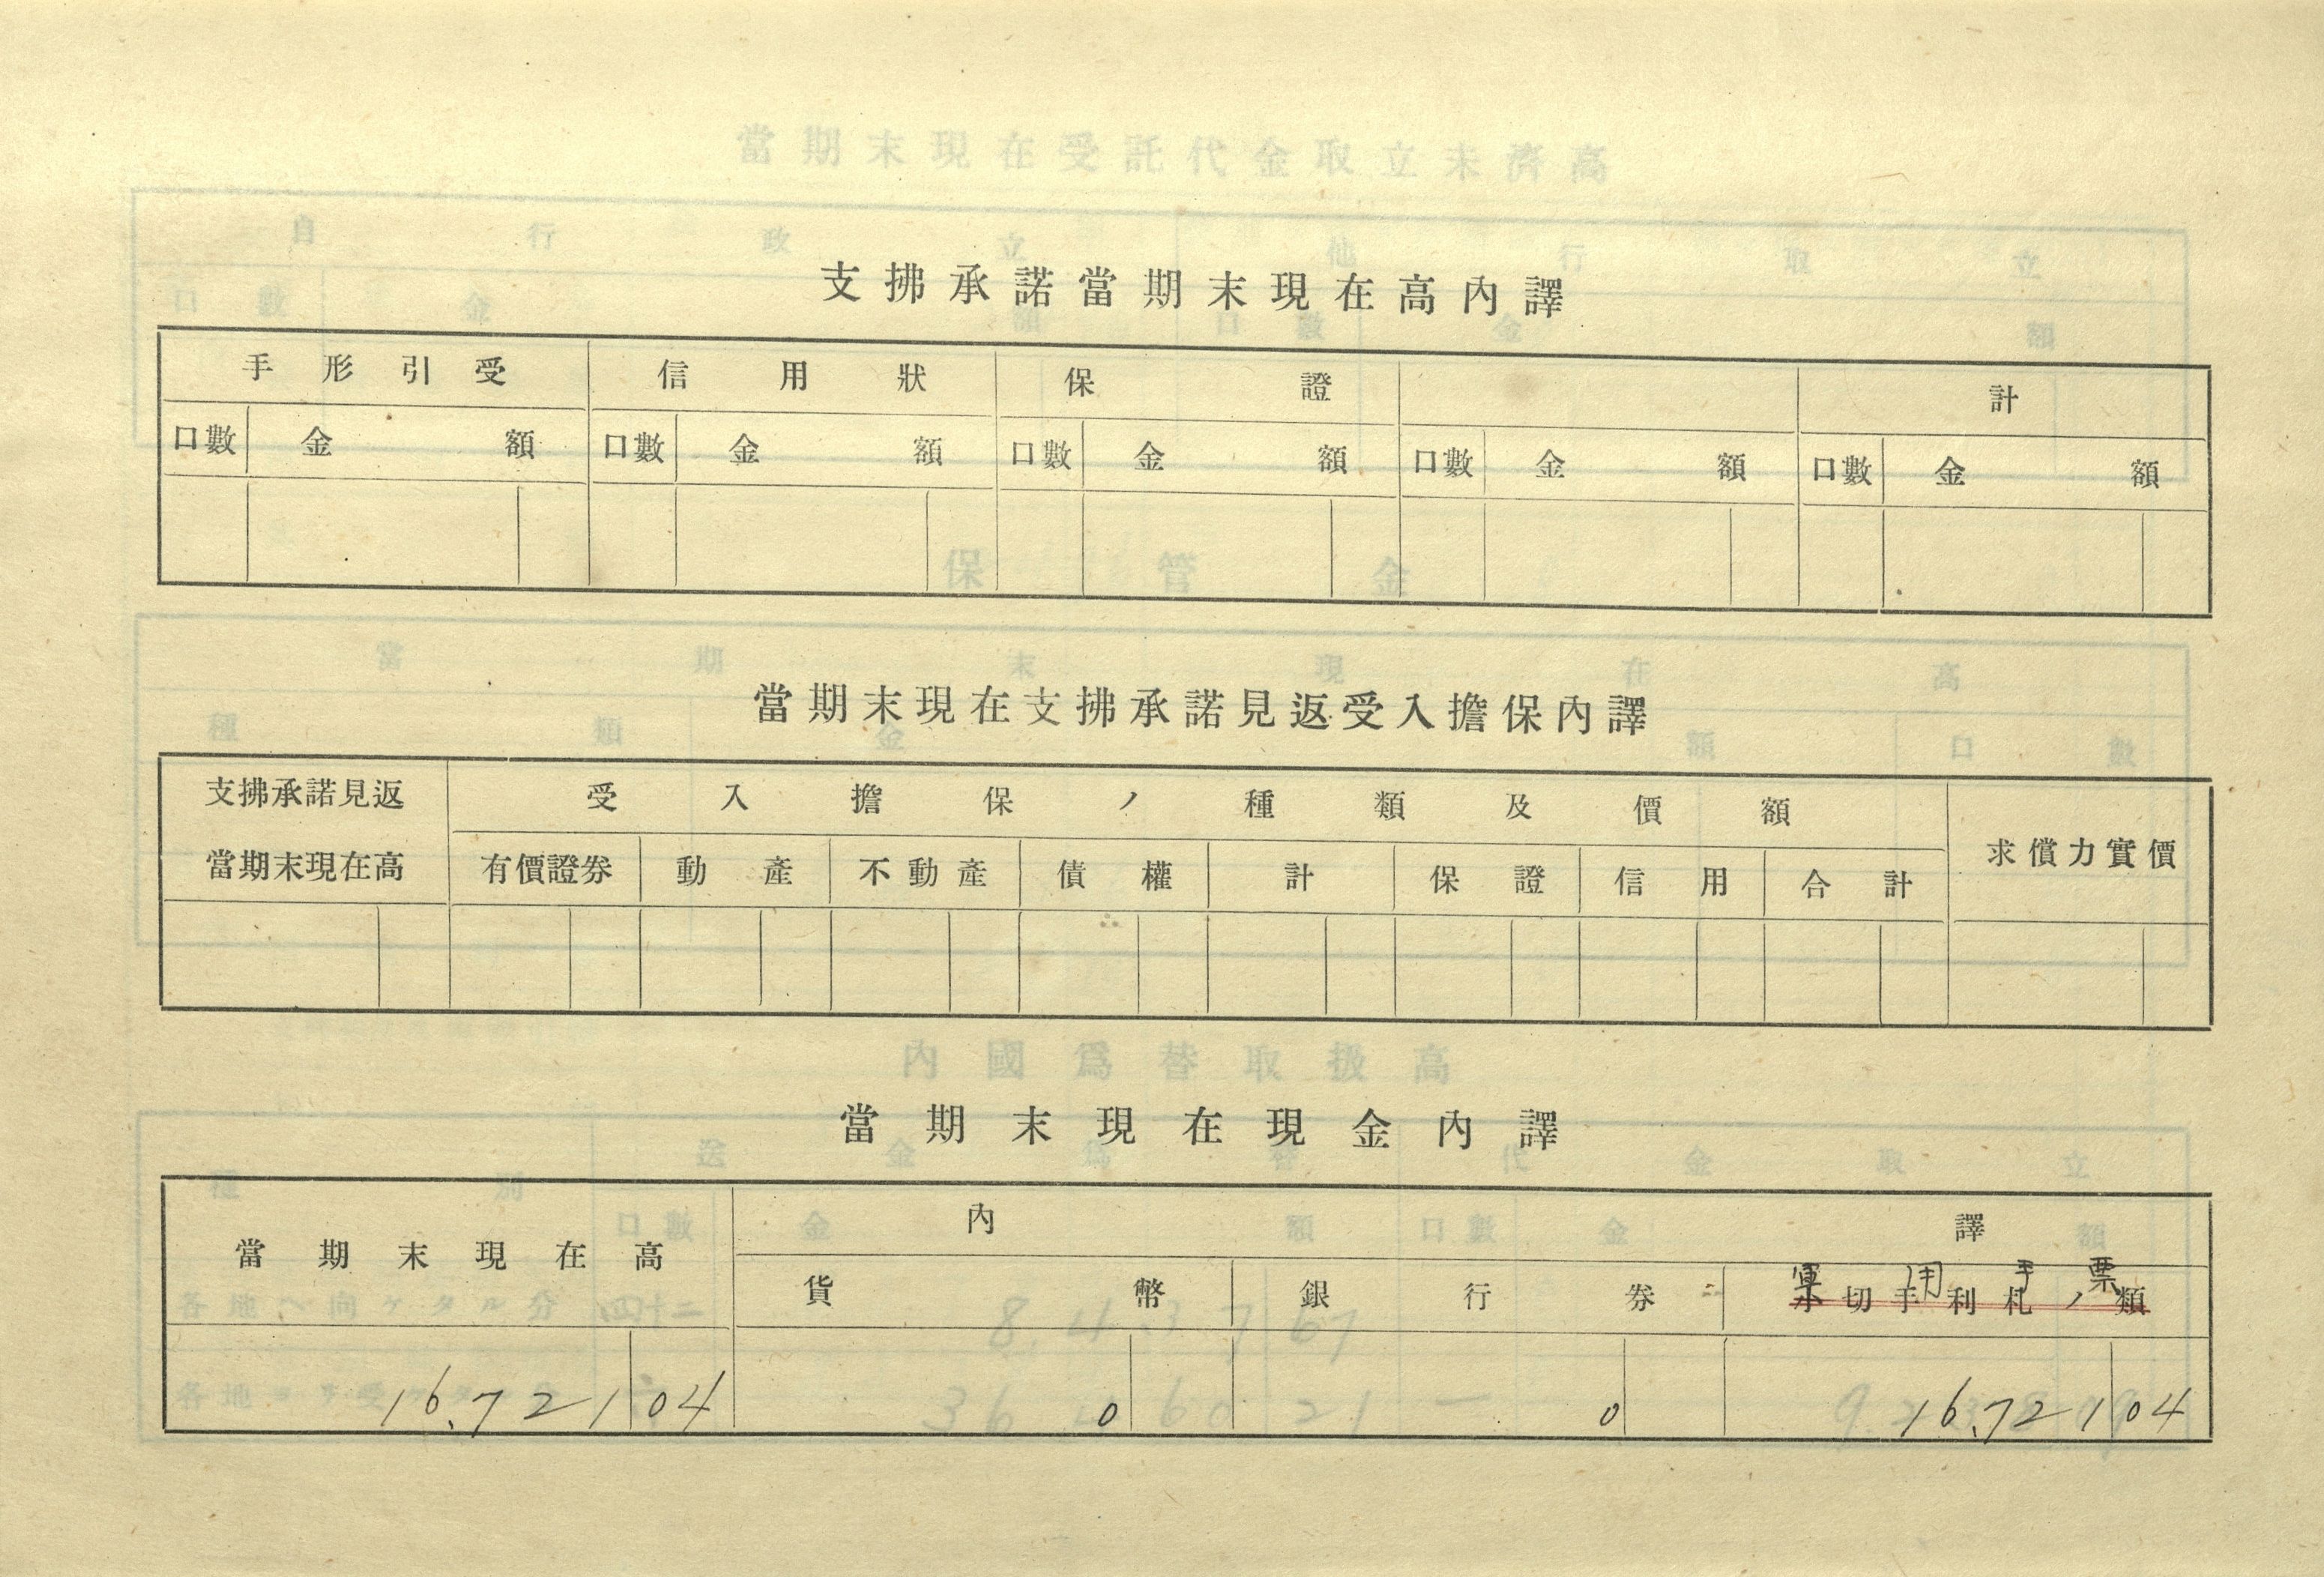 支拂承諾當期末現在高內譯
手形引受 信用狀 保證 計
口數 金額 口數 金額 口數 金額 口數 金額 口數 金額
當期末現在支拂承諾見返受入擔保內譯
支拂承諾見返 受入擔保ノ種類及價額 求償力實價
當期末現在高 有價證券 動產 不動產 債權 計 保證 信用 合計
當期末現在現金內譯
當期末現在高 內譯
軍用手票
貨幣 銀行券 切手利札ノ類
16.721 04 0 0 16.721 04